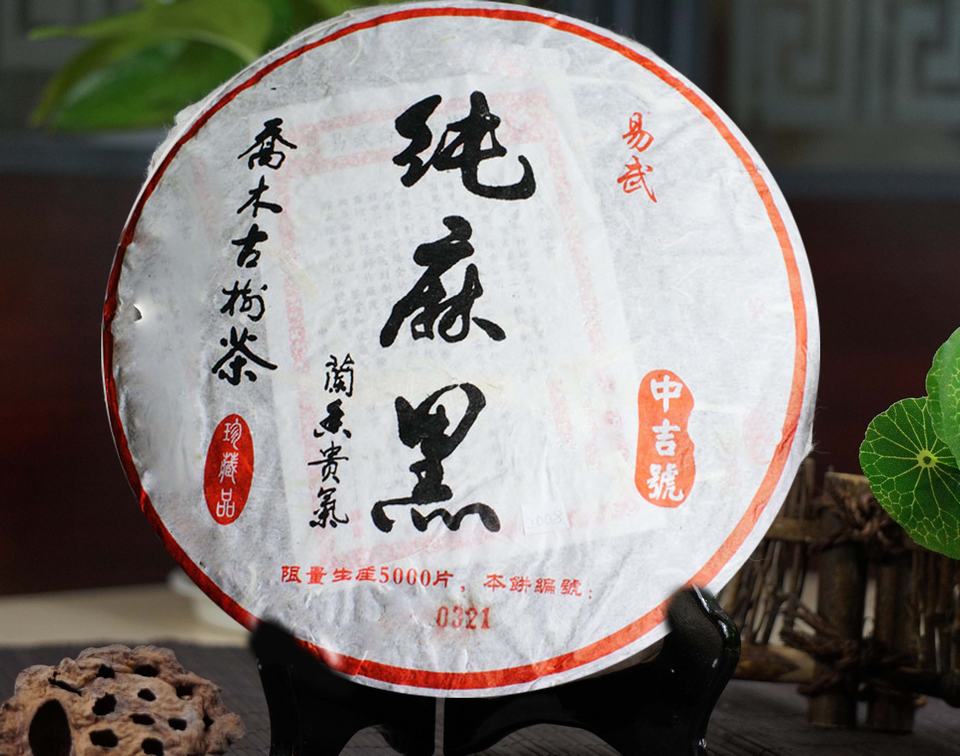 易武
中吉號
纯麻黑
蘭香貴氣
喬木古樹茶
珍藏品
限量生産5000片，本餅編號：
0321